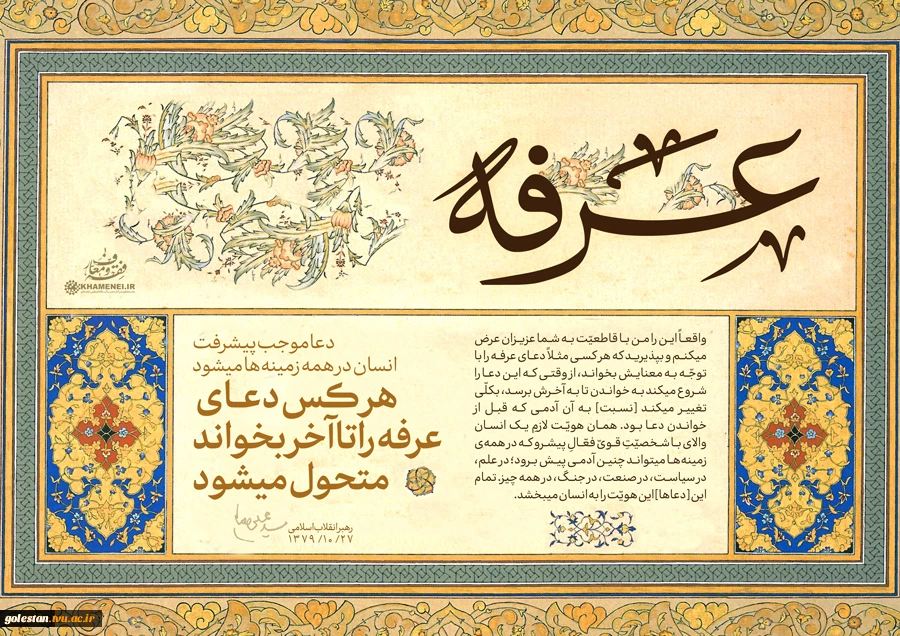 عرفه
فقه و معارف
KHAMENEI.IR
واقعاً این را من با قاطعیّت به شما عزیزان عرض
میکنم و بپذیرید که هر کسی مثلاً دعای عرفه را با
توجّه به معنایش بخواند، از وقتی که این دعا را
شروع میکند به خواندن تا به آخرش برسد، بکلّی
تغییر میکند [نسبت] به آن آدمی که قبل از
خواندن دعا بود. همان هویّت لازمِ یک انسان
والای با شخصیّتِ قویّ فعّالِ پیشرو که در همه‌ی
زمینه‌ها میتواند چنین آدمی پیش برود؛ در علم،
در سیاست، در صنعت، در جنگ، در همه چیز. تمام
این [دعاها] این هویّت را به انسان میبخشد.
دعا موجب پیشرفت
انسان در همه زمینه‌ها میشود
هر کس دعای
عرفه را تا آخر بخواند
متحول میشود
رهبر انقلاب اسلامی
۱۳۷۹/۱۰/۲۷
golestan.tvu.ac.ir